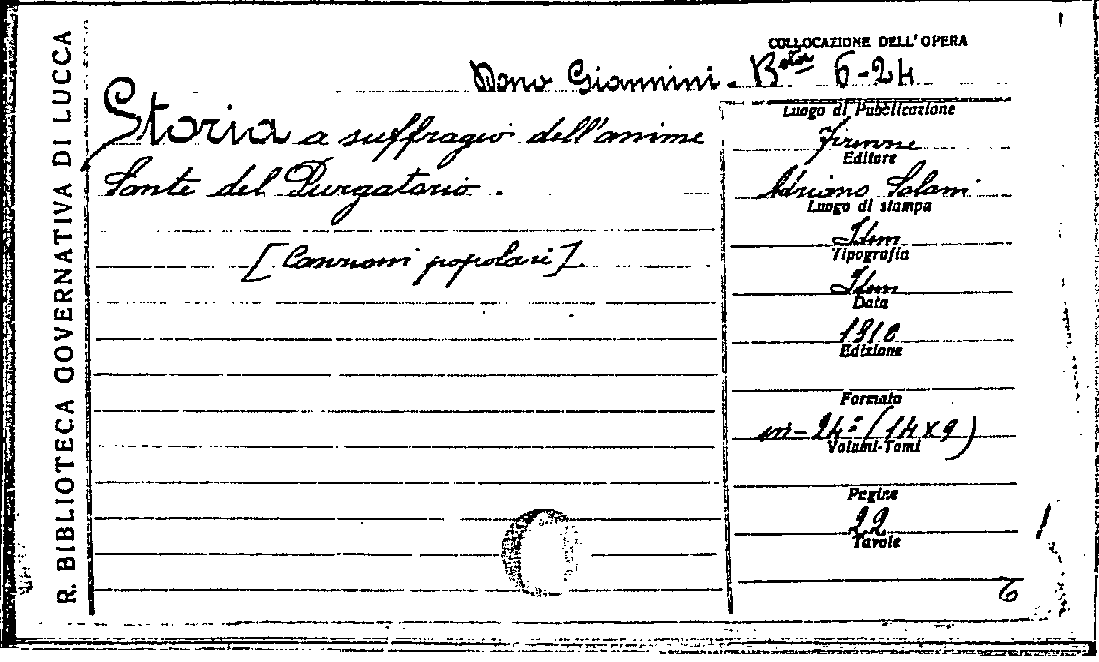 R. BIBLIOTECA GOVERNATIVA DI LUCCA
COLLOCAZIONE DELL'OPERA
Dono Giannini - Bta 6-24
Storia a suffragio dell'anime
Sante del Purgatorio.
[Canzoni popolari]
Luogo di Pubblicazione
Firenze
Editore
Adriano Salani
Luogo di stampa
Idem
Tipografia
Idem
Data
1910
Edizione
Formato
in-24º (14x9)
Volumi-Tomi
Pagine
22
Tavole
6